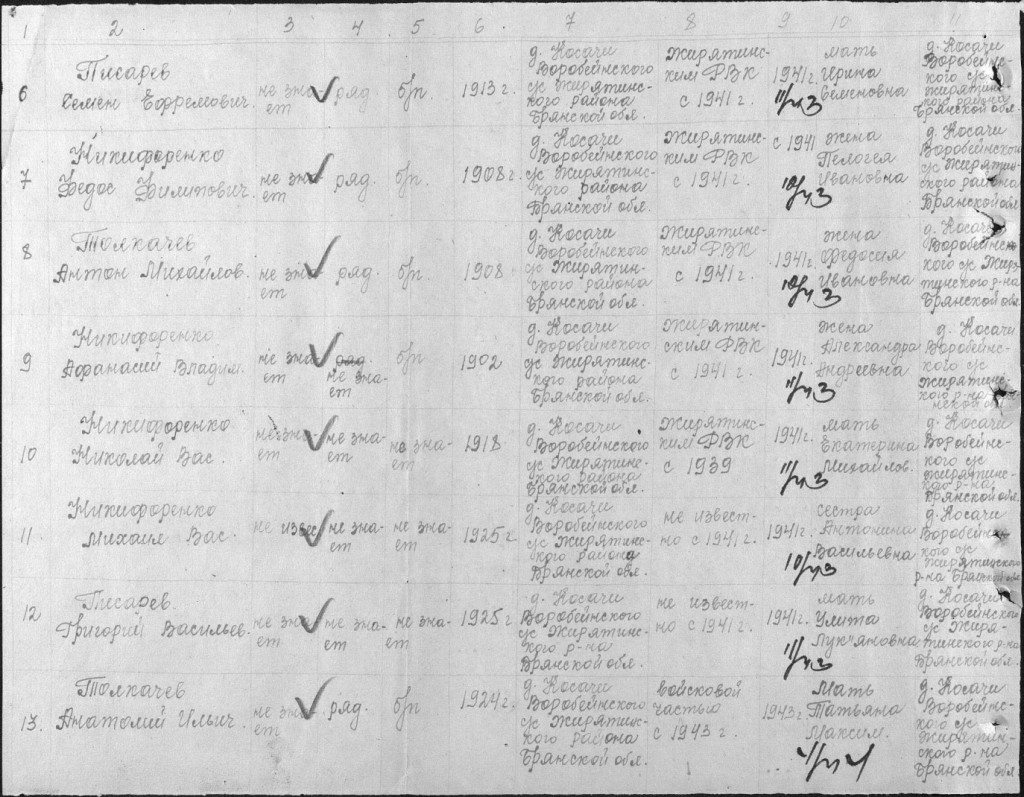 1 2 3 4 5 6 7 8 9 10 11
6
Писарев
Семен Ефремович.
не зна-
ет
ряд.
б/п.
1913 г.
д. Косачи
Воробейнского
с/с Жирятинс-
кого района
Брянской обл.
Жирятинс-
ким РВК
с 1941 г.
1941 г.
11/43
мать
Ирина
Семеновна
д. Косачи
Воробейнс-
кого с/с
Жирятинс-
кого района
Брянской обл.
7
Никифоренко
Федос Филипович.
не зна-
ет
ряд.
б/п.
1908 г.
д. Косачи
Воробейнского
с/с Жирятинс-
кого района
Брянской обл.
Жирятинс-
ким РВК
с 1941 г.
с 1941
10/43
жена
Пелогея
Ивановна
д. Косачи
Воробейнского
с/с Жирятинс-
кого района
Брянской обл.
8
Толкачев
Антон Михайлов.
не зна-
ет
ряд.
б/п.
1908
д. Косачи
Воробейнского
с/с Жирятин-
ского района
Брянской обл.
Жирятинс-
ким РВК
с 1941 г.
1941 г.
10/43
жена
Федосия
Ивановна
д. Косачи
Воробейнс-
кого с/с Жиря-
тинского р-на
Брянской обл.
9
Никифоренко
Афанасий Владим.
не зна-
ет
ряд.
не зна-
ет
б/п
1902
д. Косачи
Воробейнского
с/с Жирятинс-
кого района
Брянской обл.
Жирятин-
ским РВК
с 1941 г.
1941 г.
11/43
жена
Александра
Андреевна
д. Косачи
Воробейнс-
кого с/с
Жирятинс-
кого р-на
10
Никифоренко
Николай Вас.
не зна-
ет
не зна-
ет
не зна-
ет
1918
д. Косачи
Воробейнского
с/с Жирятинс-
кого района
Брянской обл.
Жирятинс-
ким РВК
с 1939
1941 г.
11/43
мать
Екатерина
Михайлов.
д. Косачи
Воробейнс-
кого с/с
Жирятинс-
кого р-на
Брянской обл.
11
Никифоренко
Михаил Вас.
не извес
не зна-
ет
не зна-
ет
1925 г.
д. Косачи
Воробейнского
с/с Жирятинс-
кого района
Брянской обл.
не извест-
но с 1941 г.
1941 г.
10/43
сестра
Антонина
Васильевна
д. Косачи
Воробейнс-
кого с/с
Жирятинского
р-на Брянской обл
12
Писарев.
Григорий Васильев.
не зна-
ет
не зна-
ет
не зна-
ет
1925 г
д. Косачи
Воробейнского
с/с Жирятинс-
кого р-на
Брянской обл.
не извест-
но с 1941 г.
1941 г.
11/43
мать
Улита
Лук"яновна
д. Косачи
Воробейнского
с/с Жиря-
тинского р-на
Брянской обл.
13
Толкачев
Анатолий Ильич.
не зна-
ет
ряд.
б/п
1924 г.
д. Косачи
Воробейнского
с/с Жирятинс-
кого района
Брянской обл.
войсковой
частью
с 1943 г.
1943 г.
Мать
Татьяна
Максим.
д. Косачи
Воробейнс-
кого с/с
Жирятин-
ского р-на
Брянской обл.